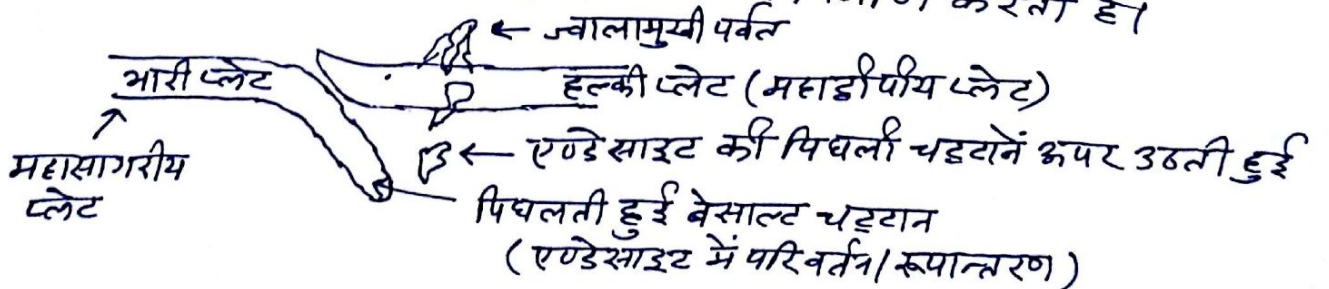 करता है।
← ज्वालामुखी पर्वत
भारी प्लेट
हल्की प्लेट (महाद्वीपीय प्लेट)
← एण्डेसाइट की पिघली चट्टानें ऊपर उठती हुई
महासागरीय
प्लेट
पिघलती हुई बेसाल्ट चट्टान
(एण्डेसाइट में परिवर्तन/रूपान्तरण)